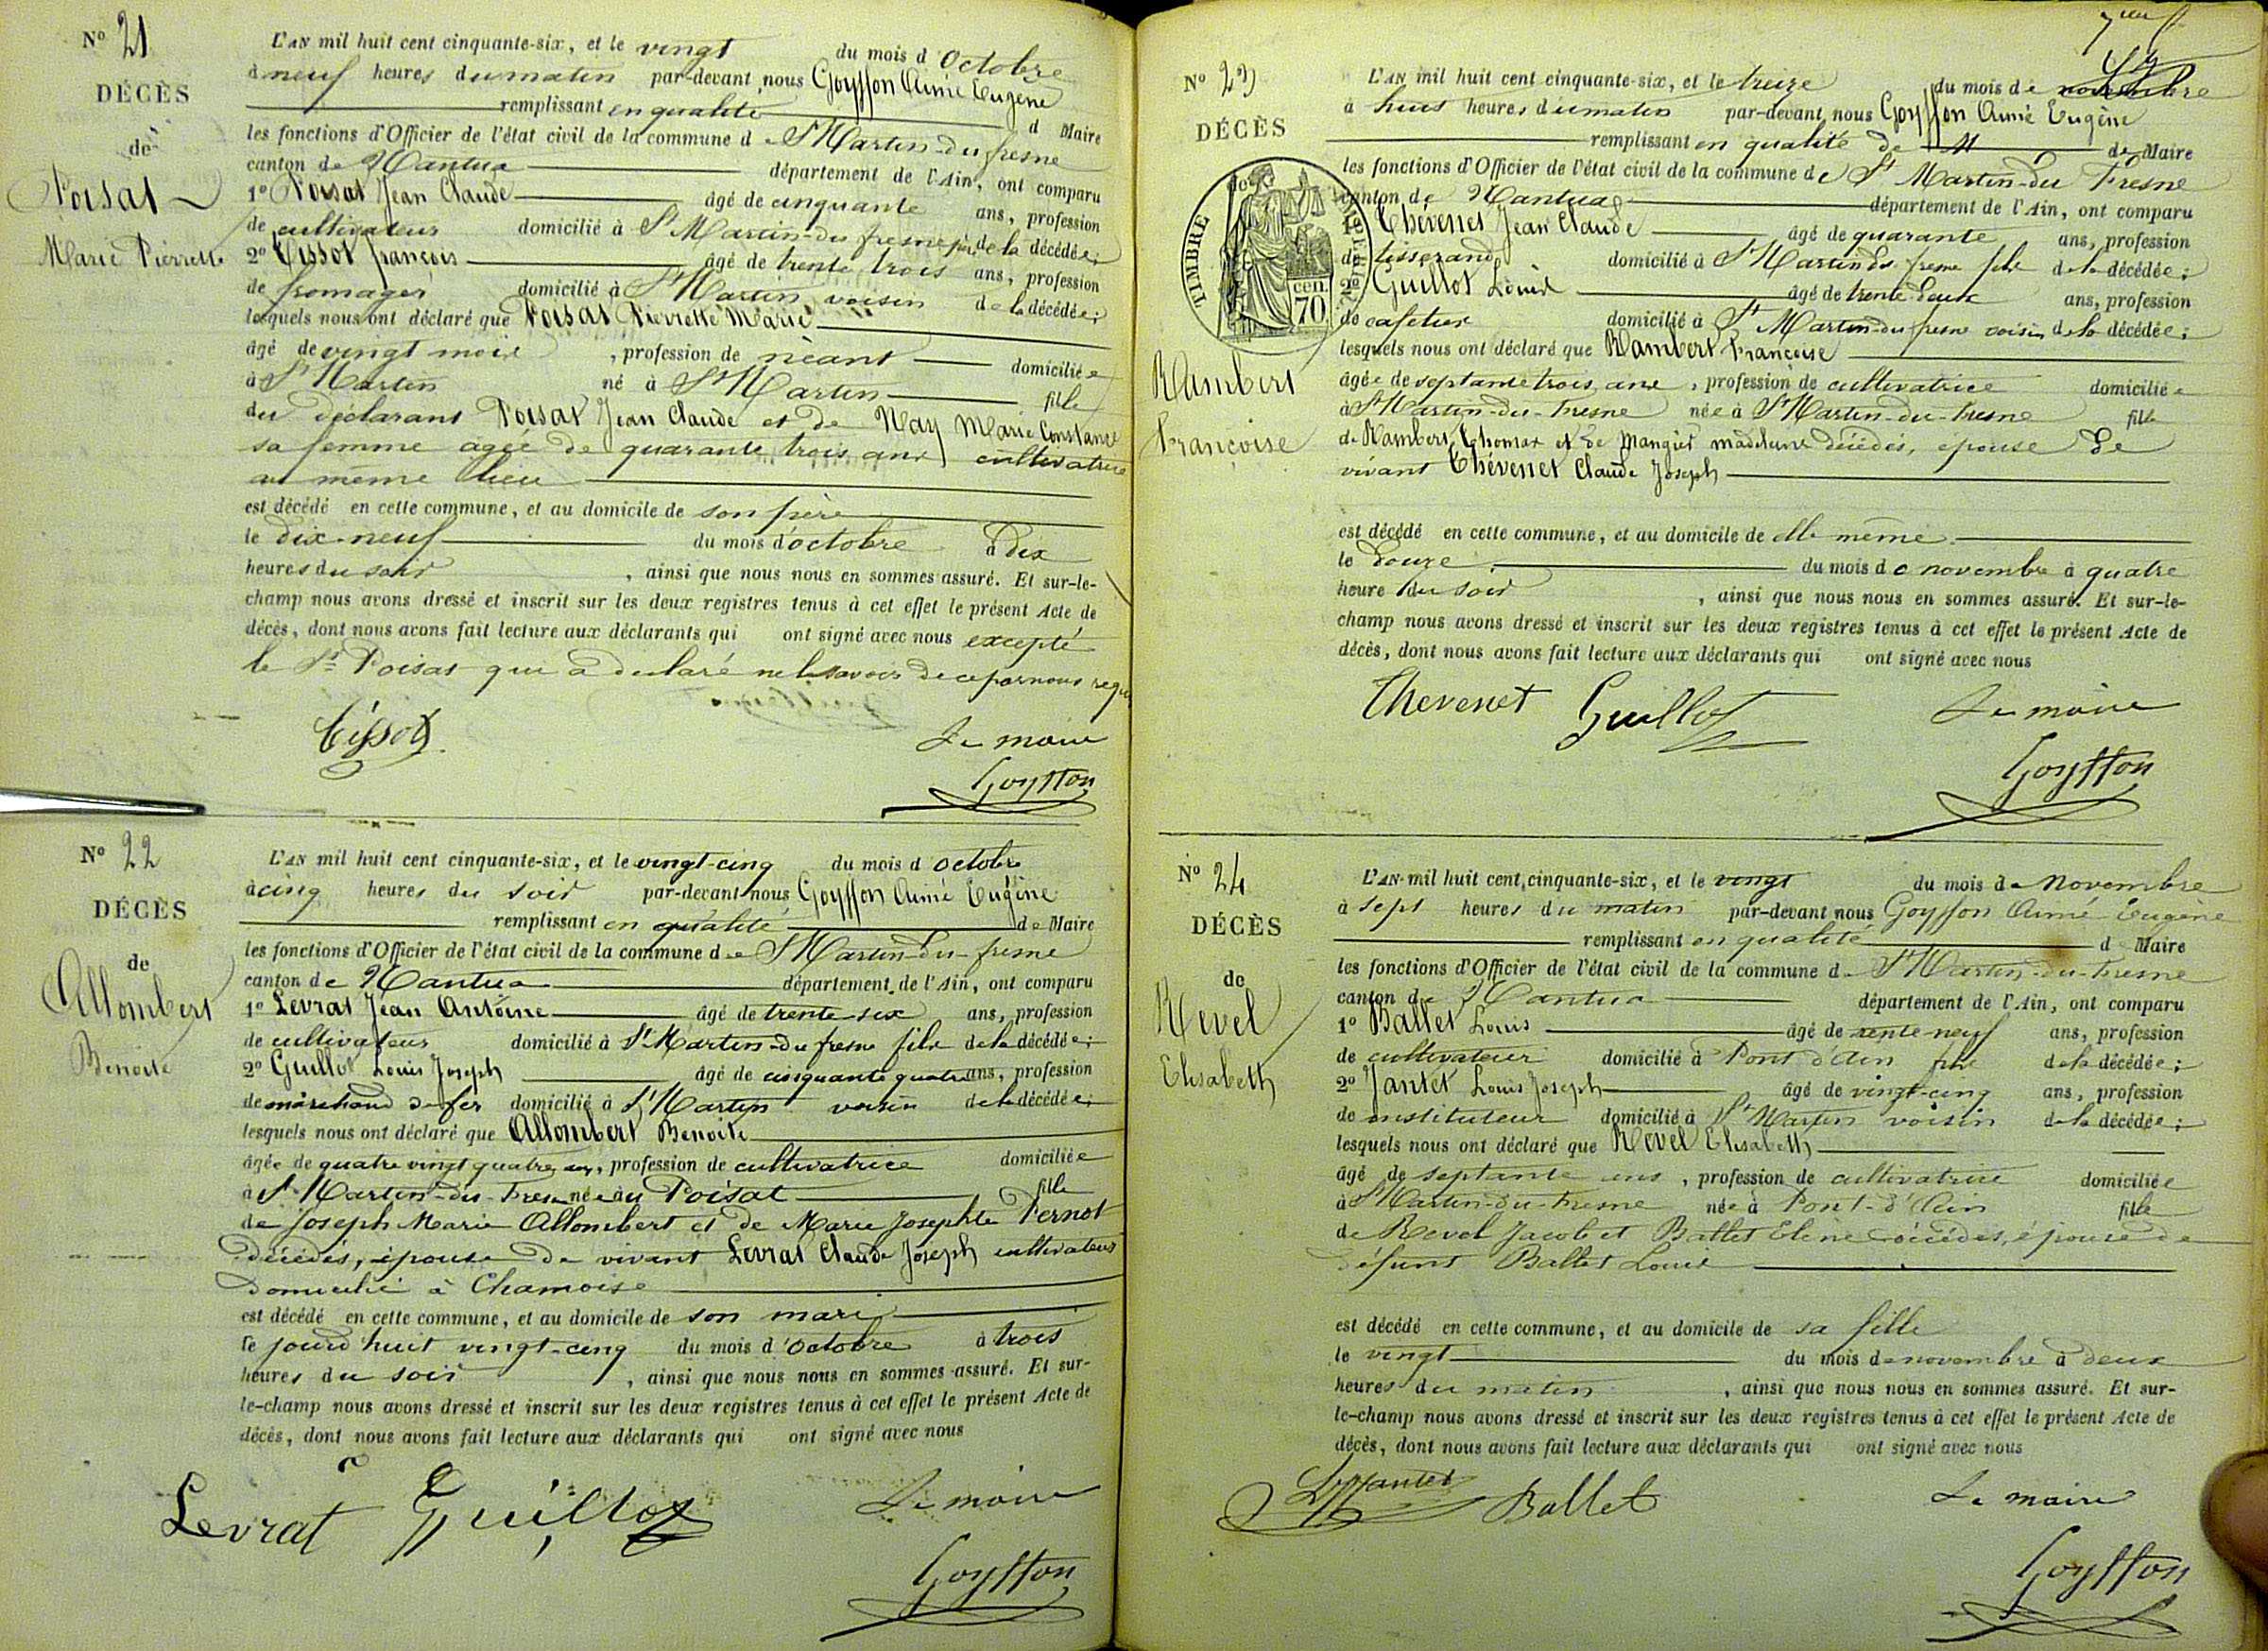 N° 21
DÉCÈS
de
Poisat
Marie Pierrette
L'AN mil huit cent cinquante-six, et le vingt du mois d Octobre
à neuf heures du matin par-devant nous Goyffon Aimé Eugène
remplissant en qualité d Maire
les fonctions d'Officier de l'état civil de la commune de St Martin-du-fresne
canton de Nantua département de l'Ain, ont comparu
1° Poisat Jean Claude âgé de cinquante ans, profession
de cultivateur domicilié à St Martin-du-fresne père de la décédée;
2° Tissot françois âgé de trente trois ans, profession
de fromager domicilié à St Martin voisin de la décédée;
lesquels nous ont déclaré que Poisat Pierrette Marie
âgé de vingt mois, profession de néant domiciliée
à St Martin né à St Martin fille
du déclarant Poisat Jean Claude et de Nay Marie Constance
sa femme agée de quarante trois ans cultivatrice
au même lieu
est décédé en cette commune, et au domicile de son père
le dix-neuf du mois d'octobre à dix
heures du soir, ainsi que nous nous en sommes assuré. Et sur-le-
champ nous avons dressé et inscrit sur les deux registres tenus à cet effet le présent Acte de
décès, dont nous avons fait lecture aux déclarants qui ont signé avec nous excepté
le Sr Poisat qui a déclaré ne le savoir de ce par nous requ
Tissot
Le maire
Goyffon
N° 22
DÉCÈS
de
Allombert
Benoite
L'AN mil huit cent cinquante-six, et le vingt-cinq du mois d octobre
à cinq heures du soir par-devant nous Goyffon Aimé Eugène
remplissant en qualité de Maire
les fonctions d'Officier de l'état civil de la commune de St Martin-du-fresne
canton de Nantua département de l'Ain, ont comparu
1° Levrat Jean Antoine âgé de trente-six ans, profession
de cultivateur domicilié à St Martin-du fresne fils de la décédée;
2° Guillot Louis Joseph âgé de cinquante quatre ans, profession
de marchand de fer domicilié à St Martin voisin de la décédée;
lesquels nous ont déclaré que Allombert Benoite
âgée de quatre vingt quatre ans, profession de cultivatrice domiciliée
à St Martin-du-Fresne née au Poisat fille
de Joseph Marie Allombert et de Marie Josephte Pernot
décédés, épouse de vivant Levrat Claude Joseph cultivateur
domicilié à Chamoise
est décédé en cette commune, et au domicile de son mari
le jourd'huit vingt-cinq du mois d'octobre à trois
heures du soir, ainsi que nous nous en sommes assuré. Et sur-
le-champ nous avons dressé et inscrit sur les deux registres tenus à cet effet le présent Acte de
décès, dont nous avons fait lecture aux déclarants qui ont signé avec nous
Levrat Guillot
Le maire
Goyffon
N° 23
DÉCÈS
TIMBRE
70 cen.
Rambert
Françoise
L'AN mil huit cent cinquante-six, et le treize du mois de novembre
à huit heures du matin par-devant nous Goyffon Aimé Eugène
remplissant en qualité de de Maire
les fonctions d'Officier de l'état civil de la commune de St Martin-du Fresne
canton de Nantua département de l'Ain, ont comparu
1° Thévenet Jean Claude âgé de quarante ans, profession
de tisserand domicilié à St Martin du fresne fils de la décédée;
2° Guillot Louis âgé de trente deux ans, profession
de cafetier domicilié à St Martin-du fresne voisin de la décédée;
lesquels nous ont déclaré que Rambert Françoise
âgée de septante trois ans, profession de cultivatrice domiciliée
à St Martin-du-Fresne née à St Martin-du-Fresne fille
de Rambert Thomas et de Mangier madeleine décédés, épouse de
vivant Thévenet Claude Joseph
est décédé en cette commune, et au domicile de elle même
le douze du mois de novembre à quatre
heure du soir, ainsi que nous nous en sommes assuré. Et sur-le-
champ nous avons dressé et inscrit sur les deux registres tenus à cet effet le présent Acte de
décès, dont nous avons fait lecture aux déclarants qui ont signé avec nous
Thevenet Guillot
Le maire
Goyffon
N° 24
DÉCÈS
de
Revel
Elisabeth
L'AN mil huit cent cinquante-six, et le vingt du mois de Novembre
à sept heures du matin par-devant nous Goyffon Aimé Eugène
remplissant en qualité d Maire
les fonctions d'Officier de l'état civil de la commune d St Martin-du-Fresne
canton de Nantua département de l'Ain, ont comparu
1° Ballet Louis âgé de trente neuf ans, profession
de cultivateur domicilié à Pont d'Ain fils de la décédée;
2° Jantet Louis Joseph âgé de vingt-cinq ans, profession
de instituteur domicilié à St Martin voisin de la décédée;
lesquels nous ont déclaré que Revel Elisabeth
âgé de septante ans, profession de cultivatrice domiciliée
à St Martin-du-Fresne née à Pont-d'Ain fille
de Revel Jacob et Ballet Elène décédés, épouse de
défunt Ballet Louis
est décédé en cette commune, et au domicile de sa fille
le vingt du mois de novembre à deux
heures du matin, ainsi que nous nous en sommes assuré. Et sur-
le-champ nous avons dressé et inscrit sur les deux registres tenus à cet effet le présent Acte de
décès, dont nous avons fait lecture aux déclarants qui ont signé avec nous
Jantet Ballet
Le maire
Goyffon